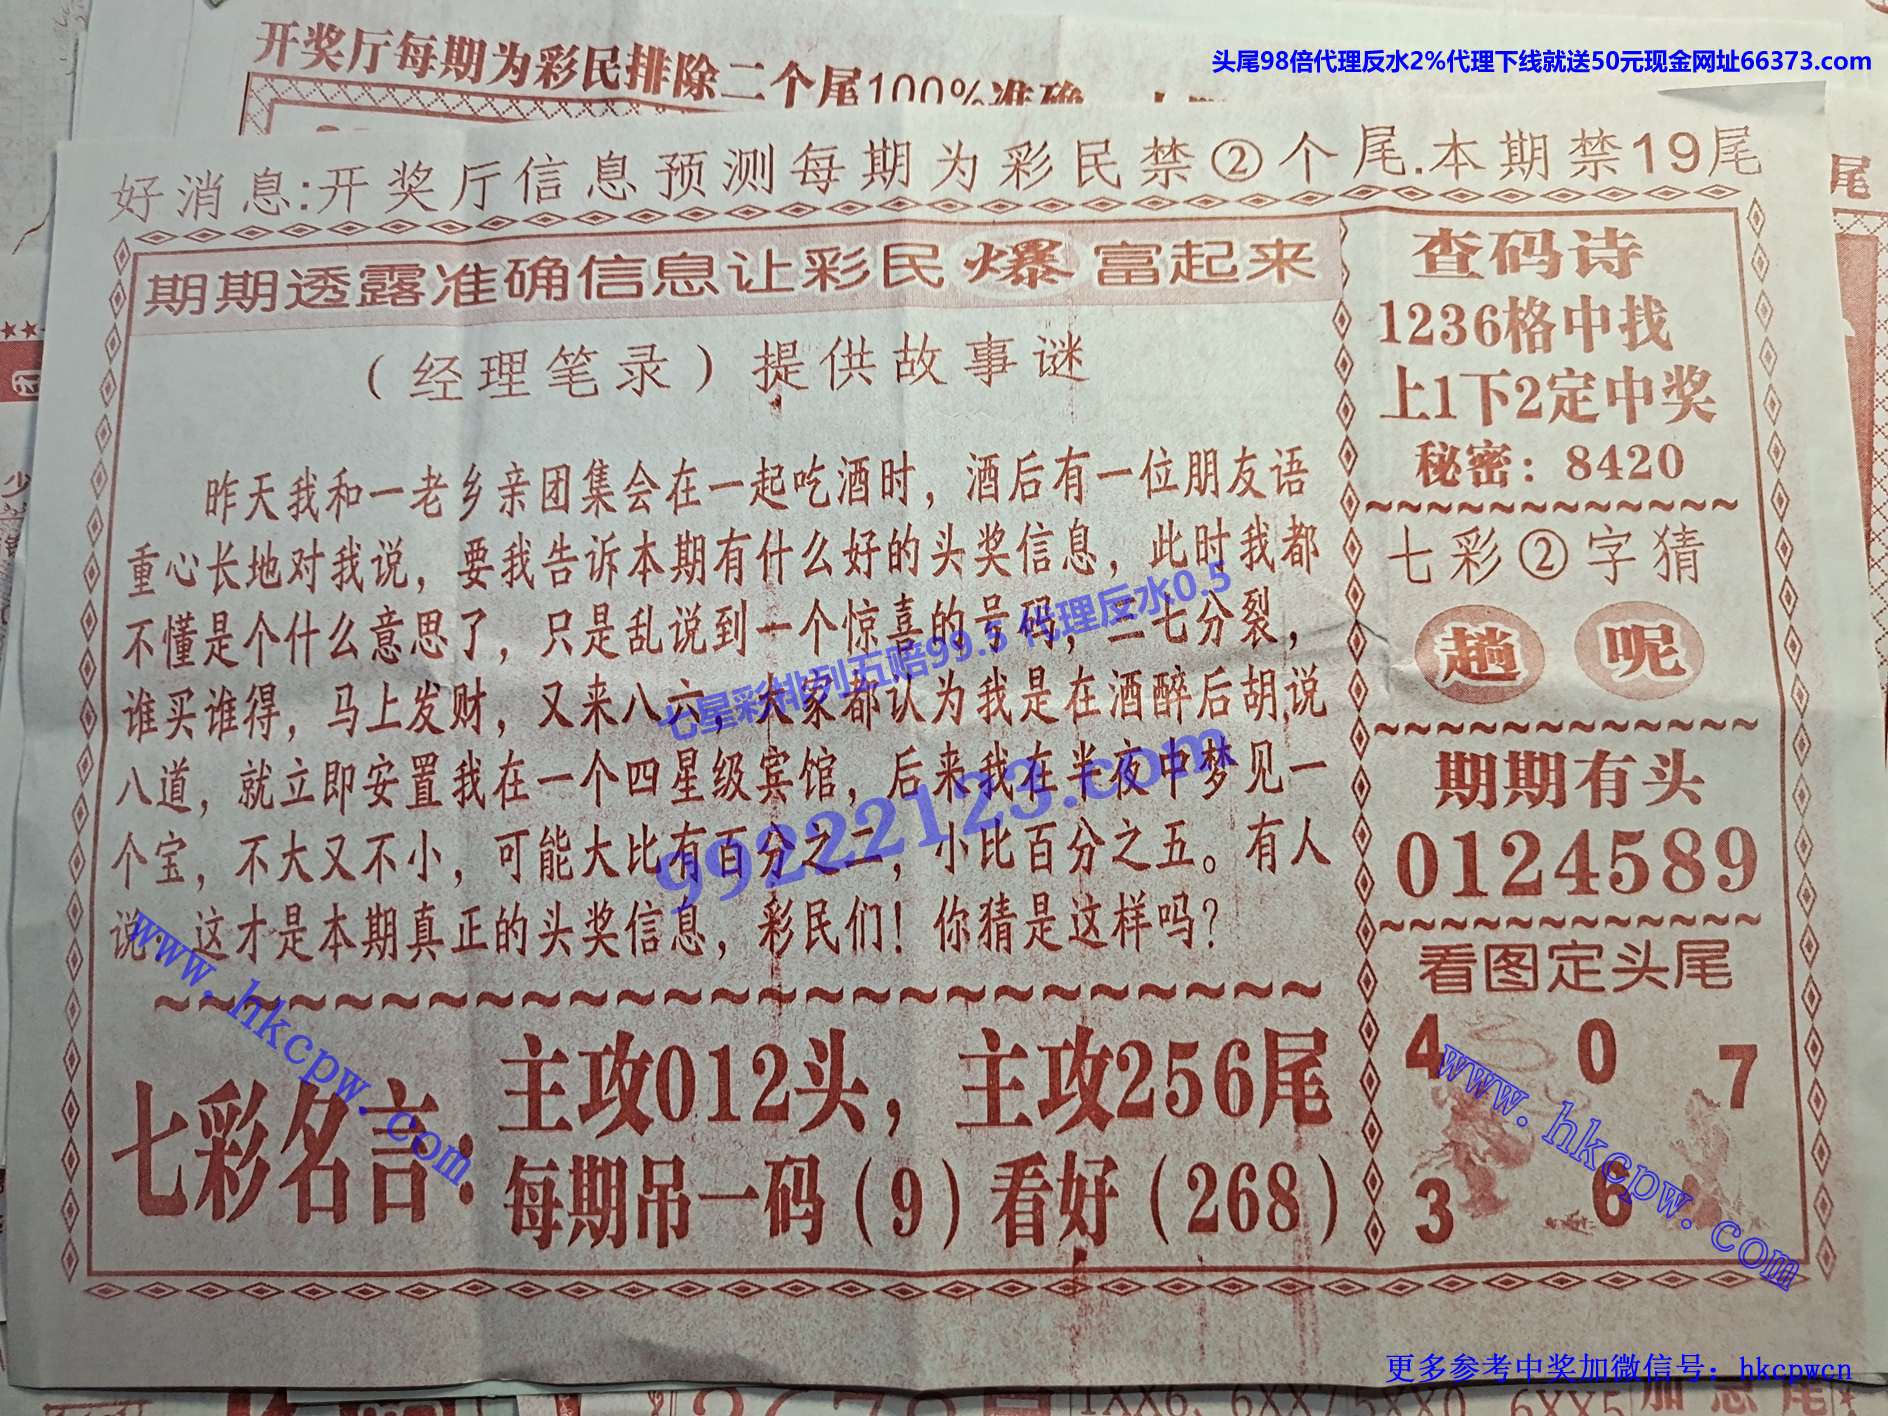 头尾98倍代理反水2%代理下线就送50元现金网址66373.com
开奖厅每期为彩民排除二个尾100%准确
好消息:开奖厅信息预测每期为彩民禁②个尾.本期禁19尾
期期透露准确信息让彩民爆富起来
（经理笔录）提供故事谜
昨天我和一老乡亲团集会在一起吃酒时，酒后有一位朋友语
重心长地对我说，要我告诉本期有什么好的头奖信息，此时我都
不懂是个什么意思了，只是乱说到一个惊喜的号码，二七分裂，
谁买谁得，马上发财，又来八六，大家都认为我是在酒醉后胡说
八道，就立即安置我在一个四星级宾馆，后来我在半夜中梦见一
个宝，不大又不小，可能大比有百分之二，小比百分之五。有人
说：这才是本期真正的头奖信息，彩民们！你猜是这样吗？
七彩名言：
主攻012头，主攻256尾
每期吊一码（9）看好（268）
查码诗
1236格中找
上1下2定中奖
秘密：8420
七彩②字猜
趟 呢
期期有头
0124589
看图定头尾
4 0 7
3 6
七星彩排列五赔99.5 代理反水0.5
99222123.com
www.hkcpw.com
www.hkcpw.com
更多参考中奖加微信号：hkcpwcn